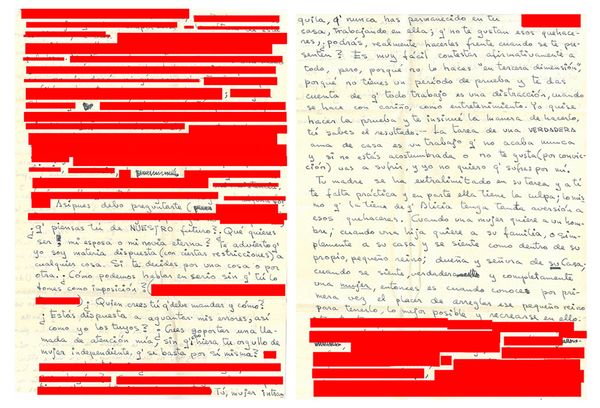 Asíques debo preguntarte
¿ q' piensas tú de NUESTRO futuro?. Qué quieres
ser ¿ mi esposa o mi novia eterna? Te advierto q'
yo soy materia dispuesta (con ciertas restricciones) a
cualquier cosa. Si te decides por una cosa o por
otra. Cómo podemos hablar en serio sin q' tú lo
tomes como imposición?
¿Quién crees tú q' debe mandar y cómo?
¿Estás dispuesta a aguantar mis errores, así
como yo los tuyos?. ¿Crees soportar una lla-
mada de atención mía, sin q' hiera tu orgullo de
mujer independiente, q' se basta por sí misma?
Tú, mujer intran
quila, q' nunca has permanecido en tu
casa, trabajando en ella; q' no te gustan esos quehace-
res, podrás, realmente hacerles frente cuando se te pre-
senten? Es muy fácil contestar afirmativamente a
todo, pero, porqué no lo haces "en tercera dimensión",
porqué no tienes un período de prueba y te das
cuenta de q' todo trabajo es una distracción, cuando
se hace con cariño, como entretenimiento. Yo quise
hacer la prueba y te insinué la manera de hacerlo,
tú sabes el resultado.- La tarea de una VERDADERA
ama de casa es un trabajo q' no acaba nunca
y si no estás acostumbrada o no te gusta (por convic-
ción) vas a sufrir, y yo no quiero q' sufras por mí.
Tu madre se ha extralimitado en su tarea y a tí
te falta práctica y en parte ella tiene la culpa; lo mis
mo q' la tiene de q' Alicia tenga tanta aversión a
esos quehaceres. Cuando una mujer quiere a un hom-
bre; cuando una hija quiere a su familia, o sim-
plemente a su casa y se siente como dentro de su
propio, pequeño reino; dueña y señora de su casa;
cuando se siente, y completamente
una mujer, entonces es cuando conoce por pri-
mera vez el placer de arreglar ese pequeño reino
para tenerlo, lo mejor posible y recrearse en ello.